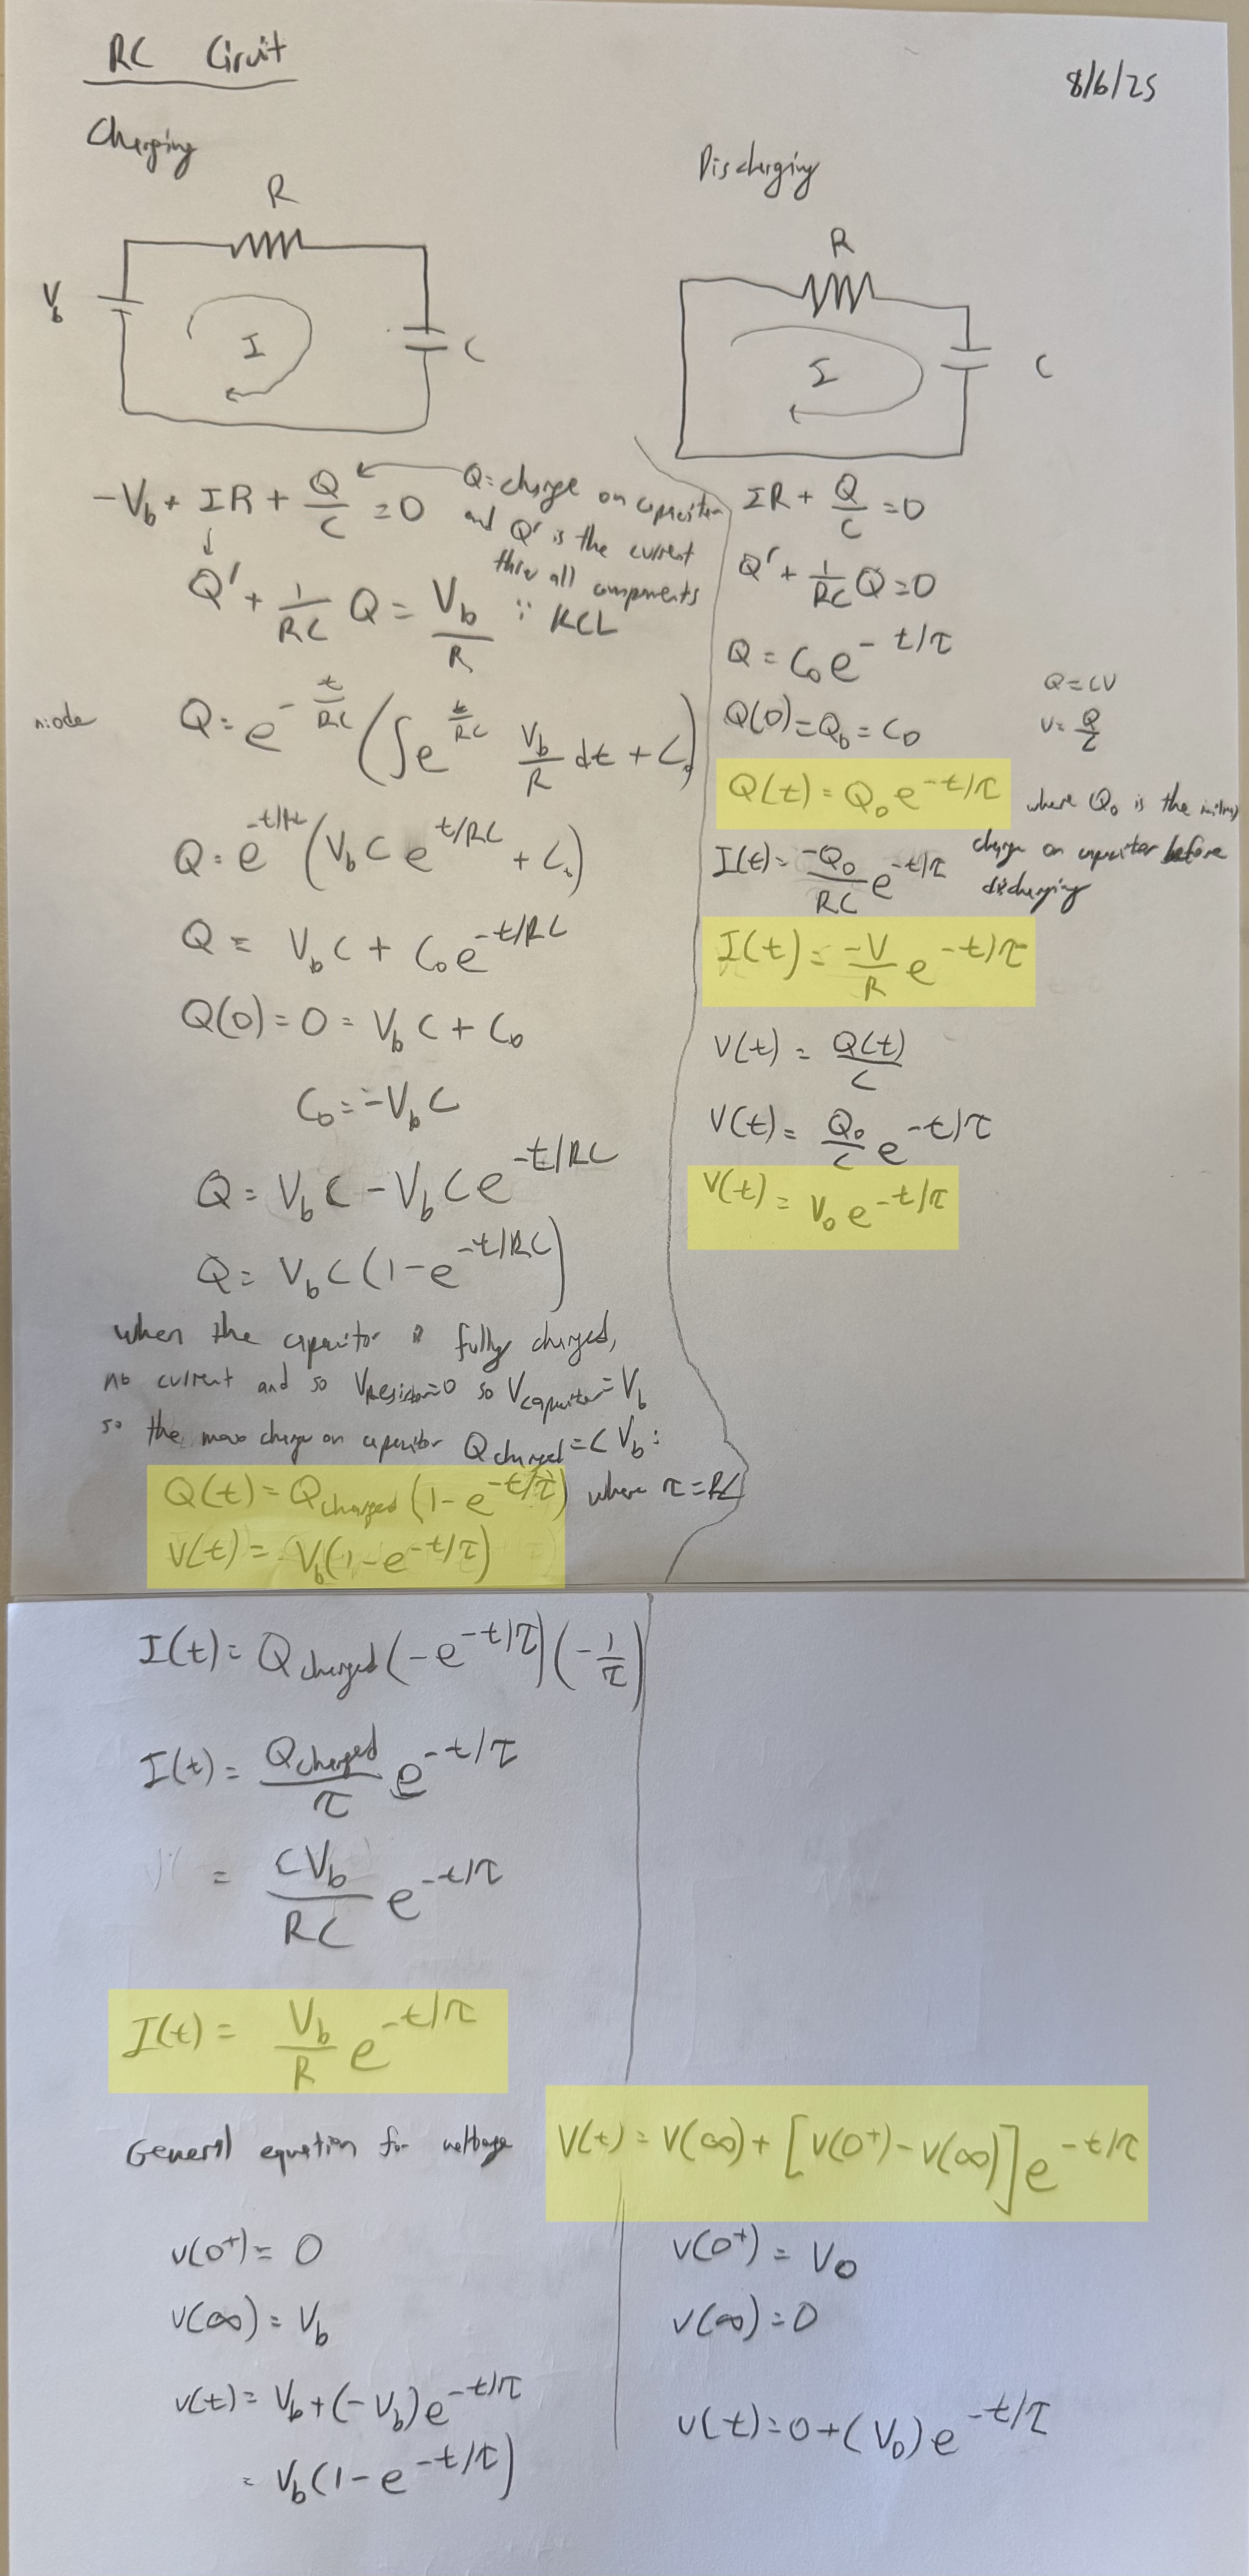 RC Ciruit
8/6/25
Charging
R
V_b
I
C
-V_b + IR + Q/C = 0
Q = charge on capacitor
and Q' is the current
thru all components
∵ KCL
Q' + 1/RC Q = V_b/R
Q = e^{-t/RC} (∫e^{t/RC} V_b/R dt + C_0)
Q = e^{-t/RC} (V_b C e^{t/RC} + C_0)
Q = V_b C + C_0 e^{-t/RC}
Q(0) = 0 = V_b C + C_0
C_0 = -V_b C
Q = V_b C - V_b C e^{-t/RC}
Q = V_b C (1 - e^{-t/RC})
when the capacitor is fully charged,
no current and so V_Resistor = 0 so V_capacitor = V_b
so the max charge on capacitor Q_charged = C V_b :
Q(t) = Q_charged (1 - e^{-t/τ}) where τ = RC
V(t) = V_b (1 - e^{-t/τ})
Discharging
R
I
C
IR + Q/C = 0
Q' + 1/RC Q = 0
Q = C_0 e^{-t/τ}
Q = CV
V = Q/C
Q(0) = Q_0 = C_0
Q(t) = Q_0 e^{-t/τ} where Q_0 is the initial
charge on capacitor before
discharging
I(t) = -Q_0/RC e^{-t/τ}
I(t) = -V/R e^{-t/τ}
V(t) = Q(t)/C
V(t) = Q_0/C e^{-t/τ}
V(t) = V_0 e^{-t/τ}
I(t) = Q_charged (-e^{-t/τ})(-1/τ)
I(t) = Q_charged/τ e^{-t/τ}
= CV_b/RC e^{-t/τ}
I(t) = V_b/R e^{-t/τ}
General equation for voltage V(t) = V(∞) + [V(0⁺) - V(∞)] e^{-t/τ}
v(0⁺) = 0
v(∞) = V_b
v(t) = V_b + (-V_b) e^{-t/τ}
= V_b (1 - e^{-t/τ})
v(0⁺) = V_0
v(∞) = 0
v(t) = 0 + (V_0) e^{-t/τ}